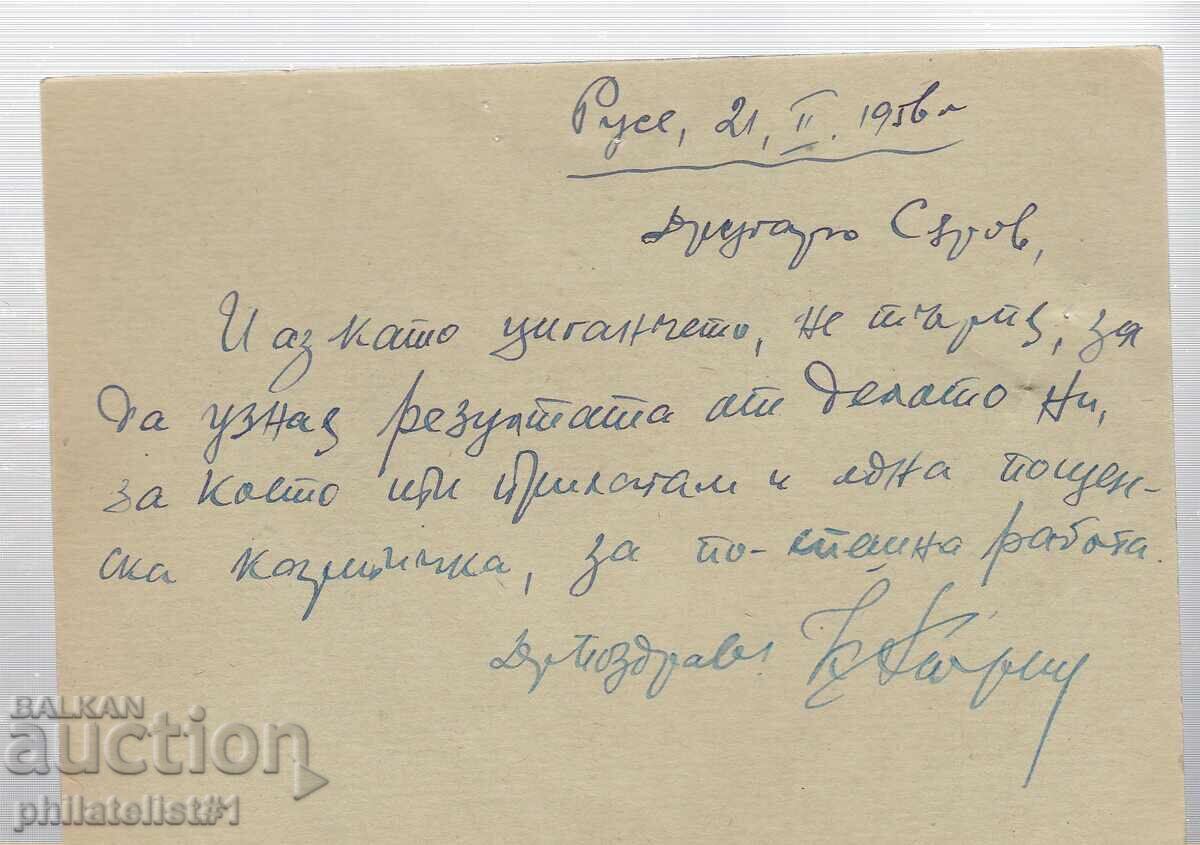 Русе, 21, II. 1956 г
Другарю Серов,
И аз като циганчето, не търпя, за
да узная резултата от делото ни,
за което ти прилагам и една пощен-
ска картичка, за по-спешна работа.
Др. поздрав!
BALKAN
auction
philatelist#1